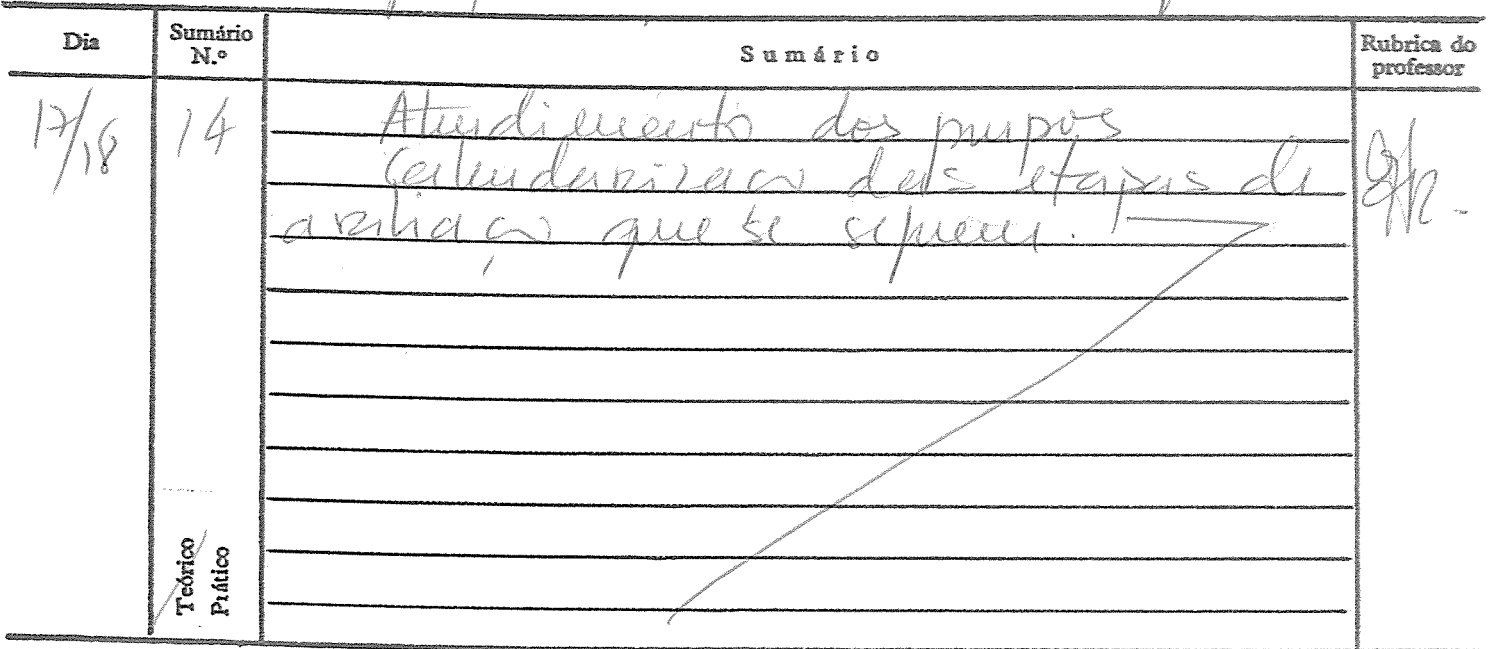 Dia
Sumário N.º
Sumário
Rubrica do professor
17/18
14
Atendimento dos grupos
Calendarização das etapas de
avaliação que se seguem.
Teórico
Prático